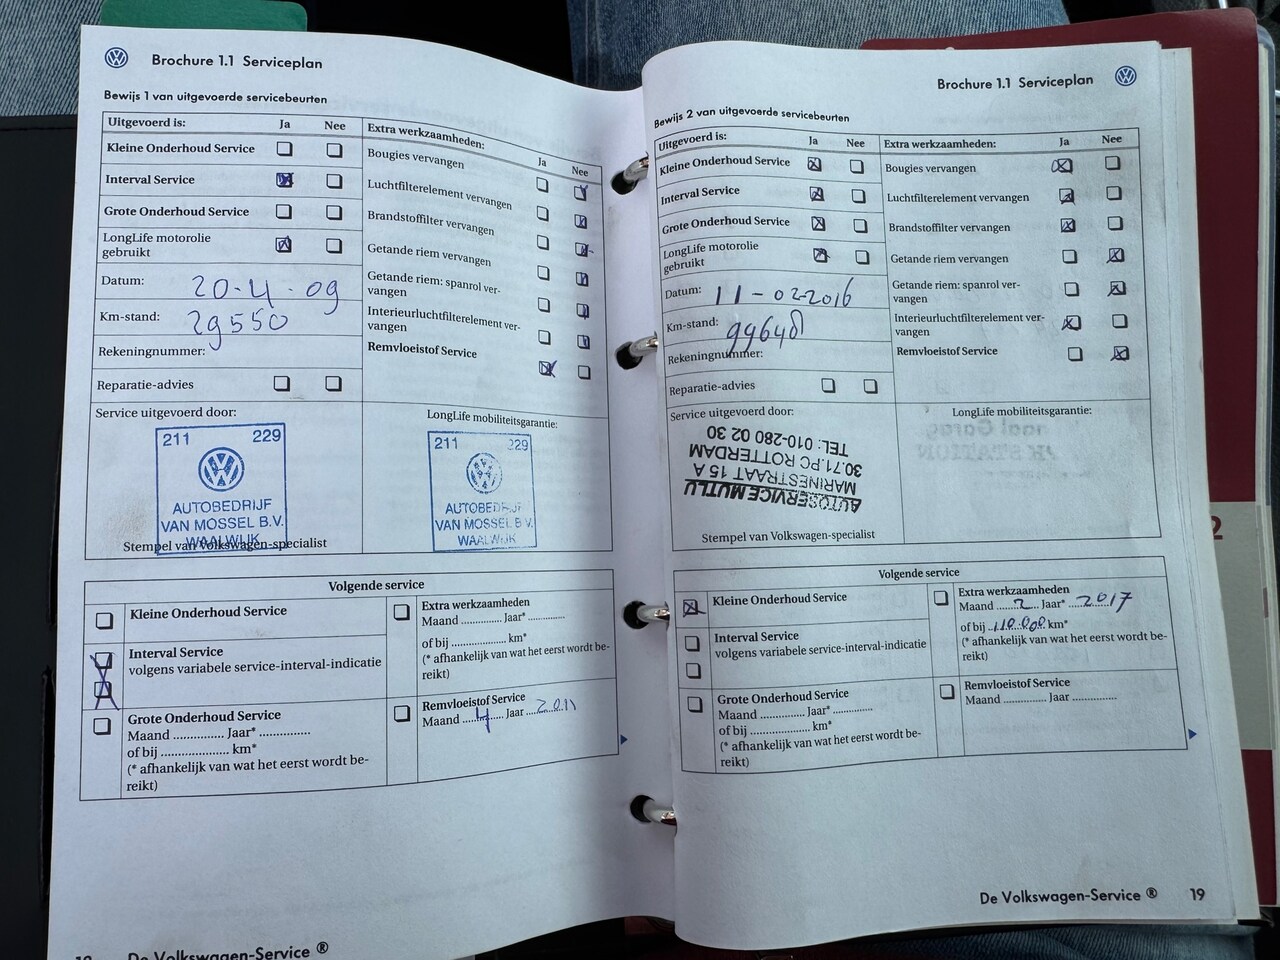 Brochure 1.1 Serviceplan
Bewijs 1 van uitgevoerde servicebeurten
Uitgevoerd is: Ja Nee
Kleine Onderhoud Service
Interval Service
Grote Onderhoud Service
LongLife motorolie
gebruikt
Datum: 20-4-09
Km-stand: 29550
Rekeningnummer:
Reparatie-advies
Extra werkzaamheden: Ja Nee
Bougies vervangen
Luchtfilterelement vervangen
Brandstoffilter vervangen
Getande riem vervangen
Getande riem: spanrol ver-
vangen
Interieurluchtfilterelement ver-
vangen
Remvloeistof Service
Service uitgevoerd door:
211 229
AUTOBEDRIJF
VAN MOSSEL B.V.
WAALWIJK
Stempel van Volkswagen-specialist
LongLife mobiliteitsgarantie:
211 229
AUTOBEDRIJF
VAN MOSSEL B.V.
WAALWIJK
Volgende service
Kleine Onderhoud Service
Interval Service
volgens variabele service-interval-indicatie
Grote Onderhoud Service
Maand .............. Jaar* ..............
of bij ................... km*
(* afhankelijk van wat het eerst wordt be-
reikt)
Extra werkzaamheden
Maand ............. Jaar* .............
of bij ................ km*
(* afhankelijk van wat het eerst wordt be-
reikt)
Remvloeistof Service
Maand 4 Jaar 2011
De Volkswagen-Service ®
Brochure 1.1 Serviceplan
Bewijs 2 van uitgevoerde servicebeurten
Uitgevoerd is: Ja Nee
Kleine Onderhoud Service
Interval Service
Grote Onderhoud Service
LongLife motorolie
gebruikt
Datum: 11-02-2016
Km-stand: 99648
Rekeningnummer:
Reparatie-advies
Extra werkzaamheden: Ja Nee
Bougies vervangen
Luchtfilterelement vervangen
Brandstoffilter vervangen
Getande riem vervangen
Getande riem: spanrol ver-
vangen
Interieurluchtfilterelement ver-
vangen
Remvloeistof Service
Service uitgevoerd door:
AUTOSERVICE MUTLU
MARINESTRAAT 15 A
30.71.PC ROTTERDAM
TEL: 010-280 02 30
Stempel van Volkswagen-specialist
LongLife mobiliteitsgarantie:
Volgende service
Kleine Onderhoud Service
Interval Service
volgens variabele service-interval-indicatie
Grote Onderhoud Service
Maand .............. Jaar* .............
of bij ................... km*
(* afhankelijk van wat het eerst wordt be-
reikt)
Extra werkzaamheden
Maand 2 Jaar* 2017
of bij 110.000 km*
(* afhankelijk van wat het eerst wordt be-
reikt)
Remvloeistof Service
Maand ............. Jaar .............
De Volkswagen-Service ® 19